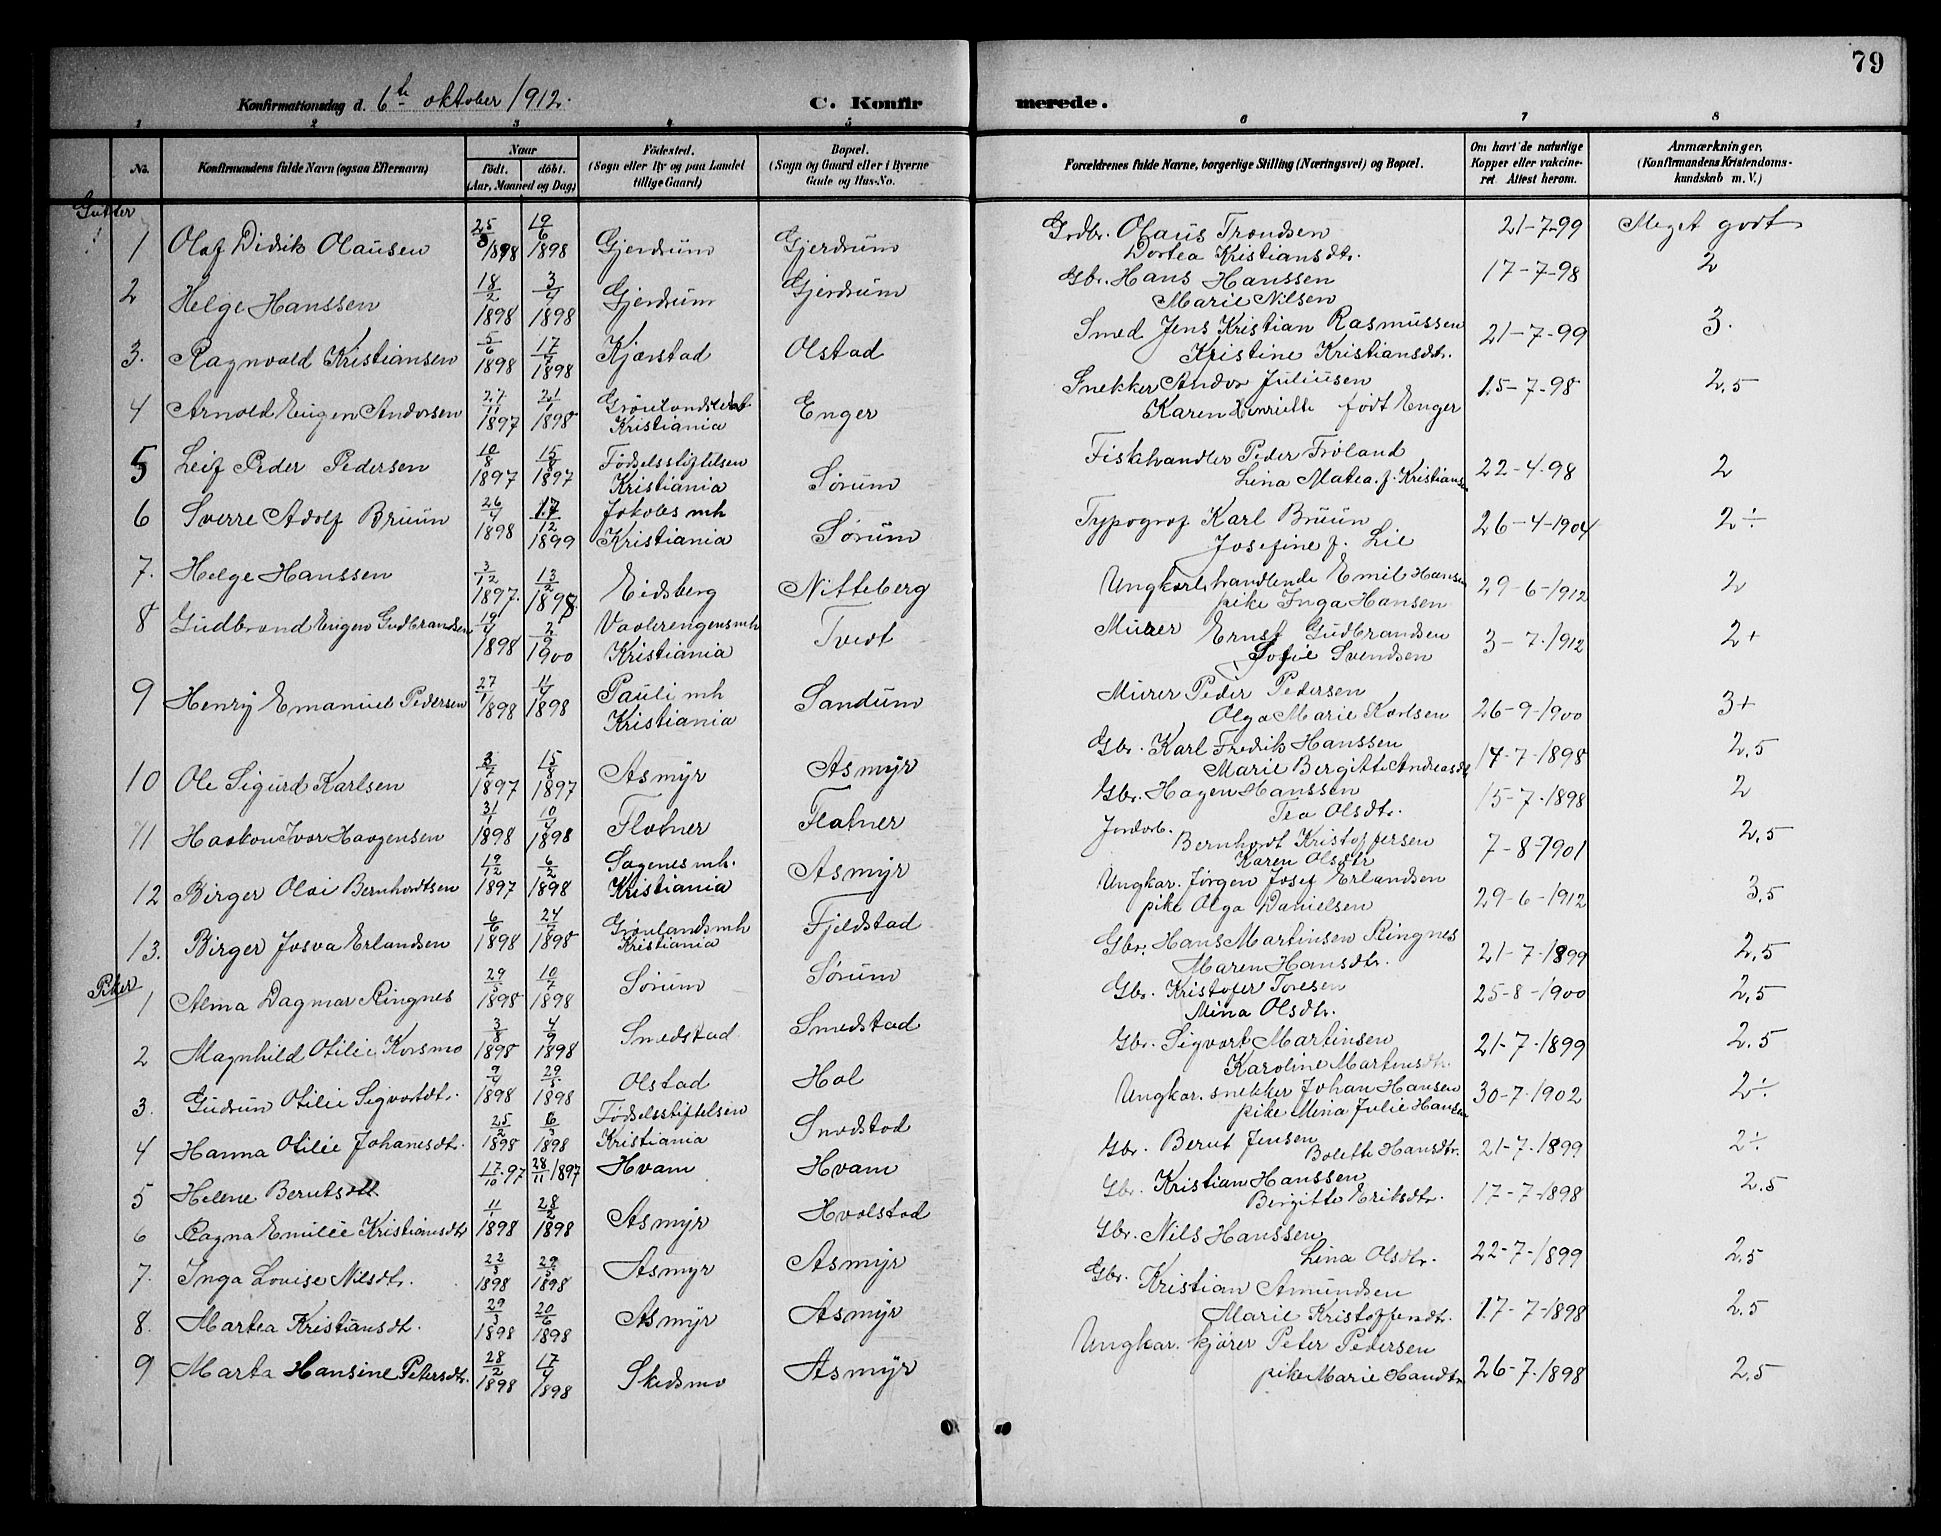 79
Konfirmationsdag d. 6te oktober 1912.
C. Konfirmerede.
1 2 3 4 5 6 7 8
No. Konfirmandens fulde Navn (ogsaa Efternavn) Naar født. døbt. (Aar, Maaned og Dag) Fødested. (Sogn eller By og paa Landet tillige Gaard) Bopæl. (Sogn og Gaard eller i Byerne Gade og Hus-No.) Forældrenes fulde Navne, borgerlige Stilling (Næringsvei) og Bopæl. Om havt de naturlige Kopper eller vakcineret Attest herom. Anmærkninger. (Konfirmandens Kristendomskundskab m. V.)
Gutter
1 Olaf Didrik Olausen 25/3 1898 19/6 1898 Gjerdrum Gjerdrum Grdbr. Olaus Trondsen Dortea Kristiansdtr. 21-7-99 Meget godt
2 Helge Hanssen 18/2 1898 3/4 1898 Gjerdrum Gjerdrum Gbr. Hans Hanssen Marie Nilsen 17-7-98 2
3. Ragnvald Kristiansen 5/6 1898 17/7 1898 Kjærstad Olstad Smed Jens Kristian Rasmussen Kristine Kristiansdtr. 21-7-99 3.
4 Arnold Eugen Andorsen 27/11 1897 21/1 1898 Kristiania Enger Snekker Andor Juliusen Karen Henriette født Enger 15-7-98 2,5
5 Leif Peder Pedersen 10/8 1897 15/8 1897 Fødselsstiftelsen Kristiania Sørum Fiskhandler Peder Frøland Lina Matea f. Kristiansen 22-4-98 2
6 Sverre Adolf Bruun 26/4 1898 17/12 1899 Jakobs mh Kristiania Sørum Typograf Karl Bruun Josefine f. Lie 26-4-1904 2÷
7. Helge Hanssen 3/12 1897. 13/2 1898 Eidsberg Nitteberg Ungkarl handlende Emil Hansen pike Inga Hansen 29-6-1912 2
8 Gudbrand Eugen Gudbrandsen 19/4 1898 2/9 1900 Vaalerengens mh Kristiania Tvedt Murer Ernst Gudbrandsen Sofie Svendsen 3-7-1912 2+
9 Henry Emanuel Pedersen 27/1 1898 11/4 1898 Pauli mh Kristiania Sandum Murer Peder Pedersen Olga Marie Karlsen 26-9-1900 3+
10 Ole Sigurd Karlsen 3/7 1897 15/8 1897 Asmyr Asmyr Gbr. Karl Fredrik Hanssen Marie Bergitte Andreasdtr 17-7-1898 2,5
11 Haakon Ivar Haagensen 31/1 1898 10/4 1898 Flatner Flatner Gbr. Hagen Hanssen Tea Olsdtr. 15-7-1898 2
12 Birger Olai Bernhardtsen 19/12 1897 6/2 1898 Sagenes mh. Kristiania Asmyr Jordarb. Bernhardt Kristoffersen Karen Olsdtr 7-8-1901 2,5
13. Birger Josva Erlandsen 6/6 1898 24/7 1898 Grønlands mh Kristiania Fjeldstad Ungkar. Jørgen Josef Erlandsen pike Olga Danielsen 29-6-1912 3,5
Piker
1 Alma Dagmar Ringnes 29/5 1898 10/7 1898 Sørum Sørum Gbr. Hans Martinsen Ringnes Maren Hansdtr. 21-7-1899 2,5
2 Magnhild Otilie Korsmo 3/8 1898 4/9 1898 Smedstad Smedstad Gbr. Kristofer Toresen Mina Olsdtr. 25-8-1900 2,5
3. Gudrun Otilie Sigvartdtr. 9/4 1898 29/5 1898 Olstad Hol Gbr. Sigvart Martinsen Karoline Martinsdtr. 21-7-1899 2.5
4 Hanna Otilie Johansdtr. 25/2 1898 6/3 1898 Fødselsstiftelsen Kristiania Smedstad Ungkar. snekker Johan Hansen pike Mina Julie Hansen 30-7-1902 2÷
5 Helene Berntsdtr 17/10 97 28/11 1897 Hvam Hvam Gbr. Bernt Jensen Bolette Hansdtr. 21-7-1899 2÷
6 Ragna Emilie Kristiansdtr 11/1 1898 28/2 1898 Asmyr Hvalstad Gbr. Kristian Hanssen Birgitte Eriksdtr. 17-7-1898 2.5
7. Inga Lovise Nilsdtr. 22/3 1898 29/5 1898 Asmyr Asmyr Gbr. Nils Hanssen Lina Olsdtr. 22-7-1899 2,5
8. Martea Kristiansdt. 29/3 1898 20/6 1898 Asmyr Asmyr Gbr. Kristian Amundsen Marie Kristoffersdtr. 17-7-1898 2,5
9 Marta Hansine Petersdtr. 28/2 1898 17/4 1898 Skedsmo Asmyr Ungkar. kjører Peter Pedersen pike Marie Handtr. 26-7-1898 2,5